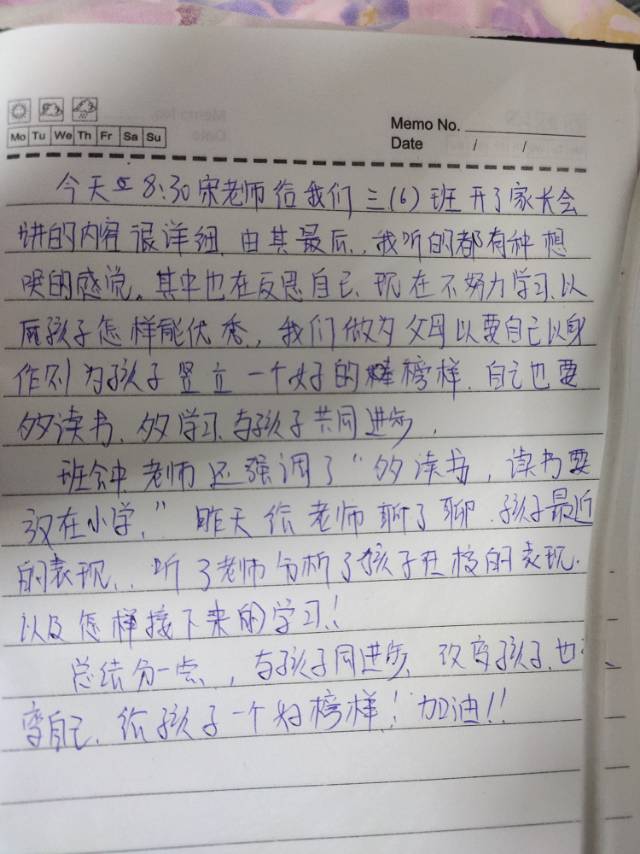 Memo No.
Mo Tu We Th Fr Sa Su
Date / /
今天 8:30宋老师给我们三(6)班开了家长会
讲的内容很详细.由其最后,我听的都有种想
哭的感觉。其中也在反思自己.现在不努力学习.以
后孩子怎样能优秀,我们做为父母以要自己以身
作则为孩子竖立一个好的榜样.自己也要
多读书、多学习.与孩子共同进步.
班会中老师还强调了“多读书,读书要
放在小学,”昨天给老师聊了聊.孩子最近
的表现..听了老师分析了孩子在校的表现.
以及怎样接下来的学习!
总结分一点,与孩子同进步.改变孩子.也
变自己.给孩子一个好榜样!加油!!